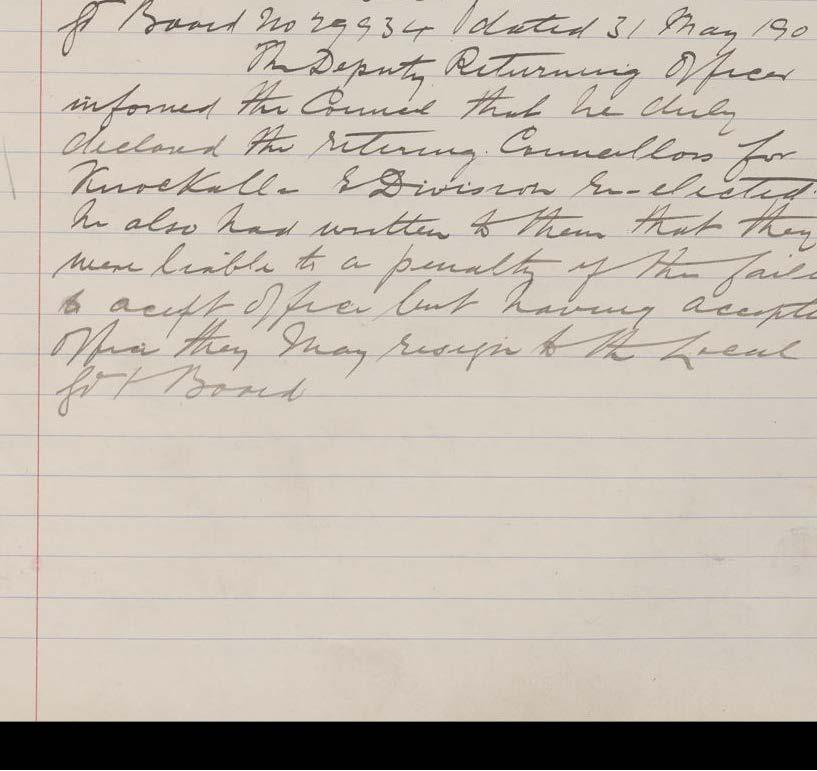 gt Board No 29934 dated 31 May 190
The Deputy Returning Officer
informed the Council that he duly
declared the retiring Councillors for
Knockalla E Division re-elected.
he also had written to them that they
were liable to a penalty if they fail
to acept office but having accepte
office they may resign to the Local
Gvt Board